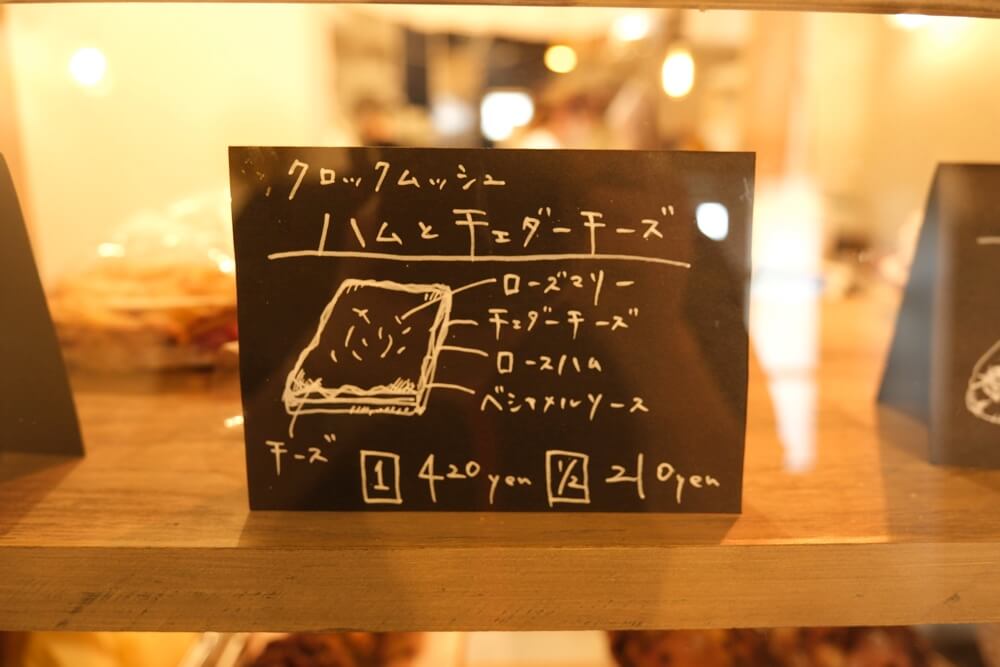 クロックムッシュ
ハムとチェダーチーズ
ローズマリー
チェダーチーズ
ロースハム
ベシャメルソース
チーズ
1 420yen 1/2 210yen